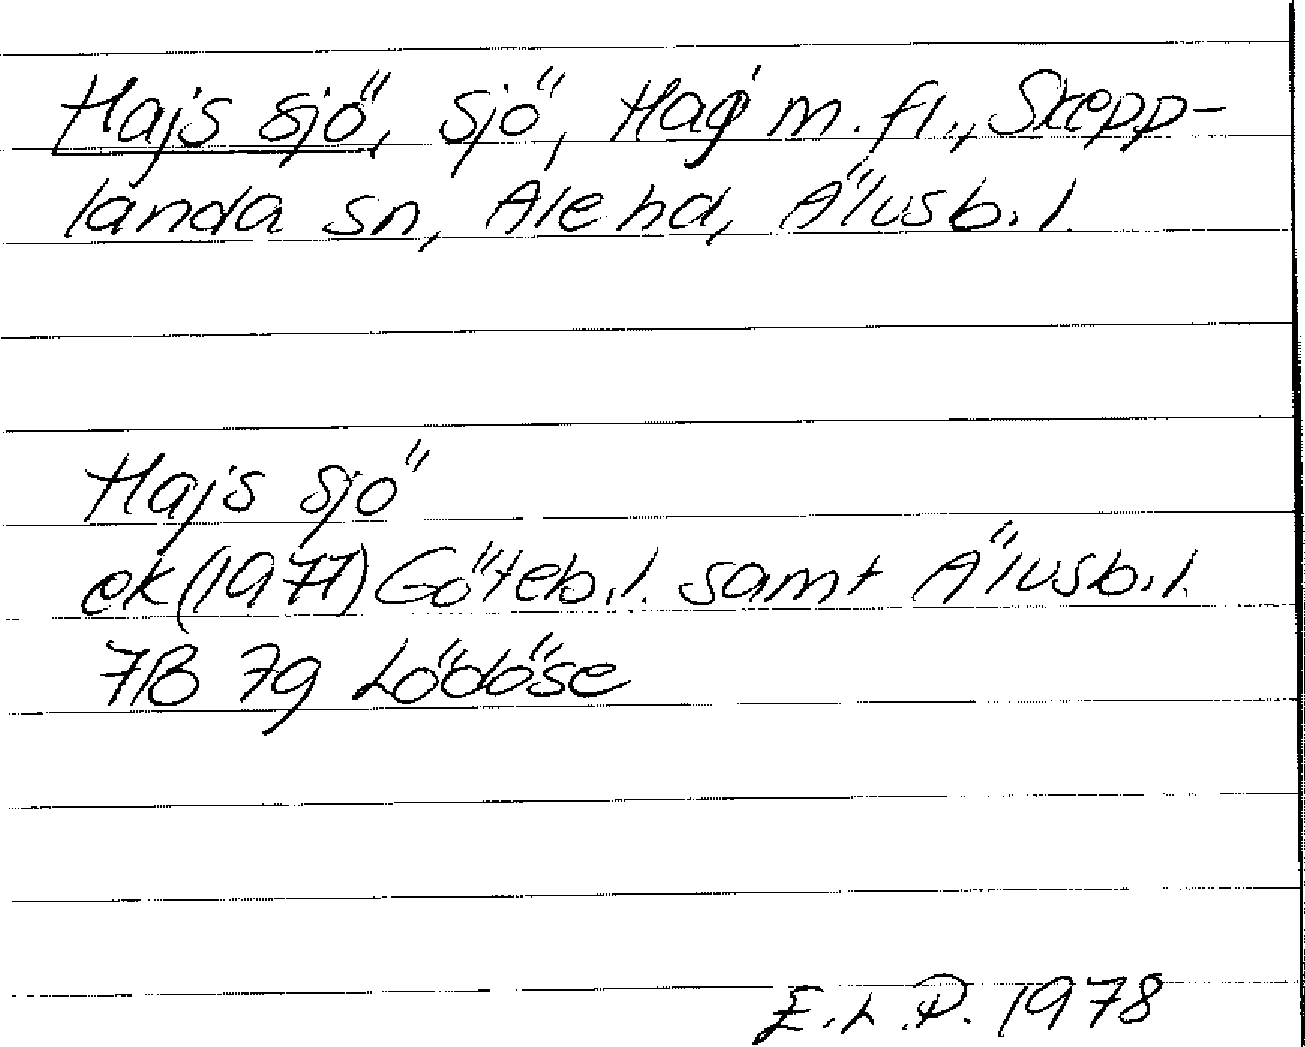 Hajs sjö, sjö, Hag m. fl., Skepp-
landa sn, Ale hd, Älvsb. l.
Hajs sjö
ek (1977) Göteb. l. samt Älvsb. l.
7B 7g Lödöse
E. L. P. 1978